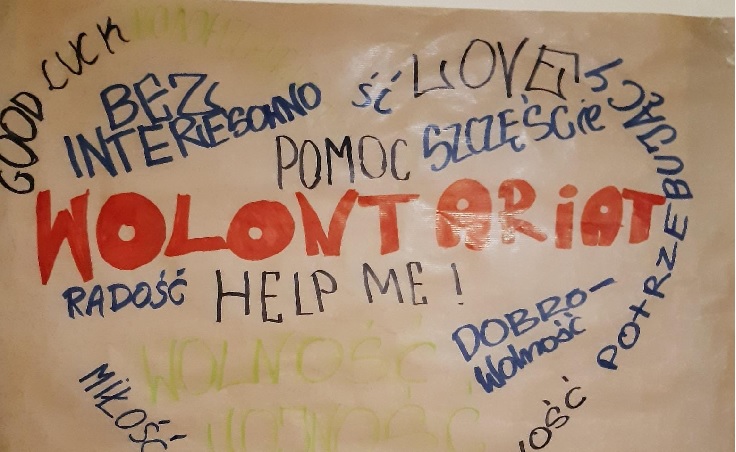 GOOD LUCK
BEZ
INTERESOWNO
ŚĆ
LOVE
POMOC
SZCZĘŚCie
POTRZEBUJĄCY
WOLONTARiAT
RADOŚĆ
HELP ME!
DOBRO-
Wolność
WOLNOŚĆ
MIŁOŚĆ
OŚĆ